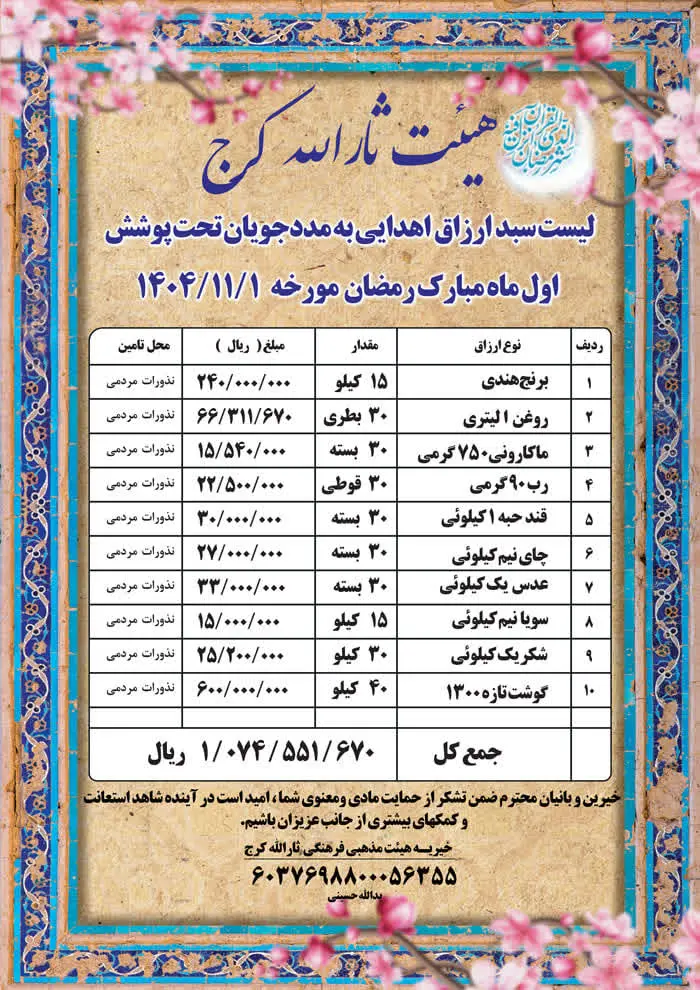 هیئت ثارالله کرج
شهر رمضان الذی انزل فیه القرآن
لیست سبد ارزاق اهدایی به مددجویان تحت پوشش
اول ماه مبارک رمضان مورخه ۱۴۰۴/۱۱/۱
ردیف نوع ارزاق مقدار مبلغ ( ریال ) محل تامین
۱ برنج هندی ۱۵ کیلو ۲۴۰/۰۰۰/۰۰۰ نذورات مردمی
۲ روغن ۱ لیتری ۳۰ بطری ۶۶/۳۱۱/۶۷۰ نذورات مردمی
۳ ماکارونی ۷۵۰ گرمی ۳۰ بسته ۱۵/۵۴۰/۰۰۰ نذورات مردمی
۴ رب ۹۰ گرمی ۳۰ قوطی ۲۲/۵۰۰/۰۰۰ نذورات مردمی
۵ قند حبه ۱ کیلوئی ۳۰ بسته ۳۰/۰۰۰/۰۰۰ نذورات مردمی
۶ چای نیم کیلوئی ۳۰ بسته ۲۷/۰۰۰/۰۰۰ نذورات مردمی
۷ عدس یک کیلوئی ۳۰ بسته ۳۳/۰۰۰/۰۰۰ نذورات مردمی
۸ سویا نیم کیلوئی ۱۵ کیلو ۱۵/۰۰۰/۰۰۰ نذورات مردمی
۹ شکر یک کیلوئی ۳۰ کیلو ۲۵/۲۰۰/۰۰۰ نذورات مردمی
۱۰ گوشت تازه ۱۳۰۰ ۴۰ کیلو ۶۰۰/۰۰۰/۰۰۰ نذورات مردمی
جمع کل ۱/۰۷۴/۵۵۱/۶۷۰ ریال
خیرین و بانیان محترم ضمن تشکر از حمایت مادی ومعنوی شما ، امید است در آینده شاهد استعانت
و کمکهای بیشتری از جانب عزیزان باشیم.
خیریه هیئت مذهبی فرهنگی ثارالله کرج
۶۰۳۷۶۹۸۸۰۰۰۵۶۳۵۵
یدالله حسینی